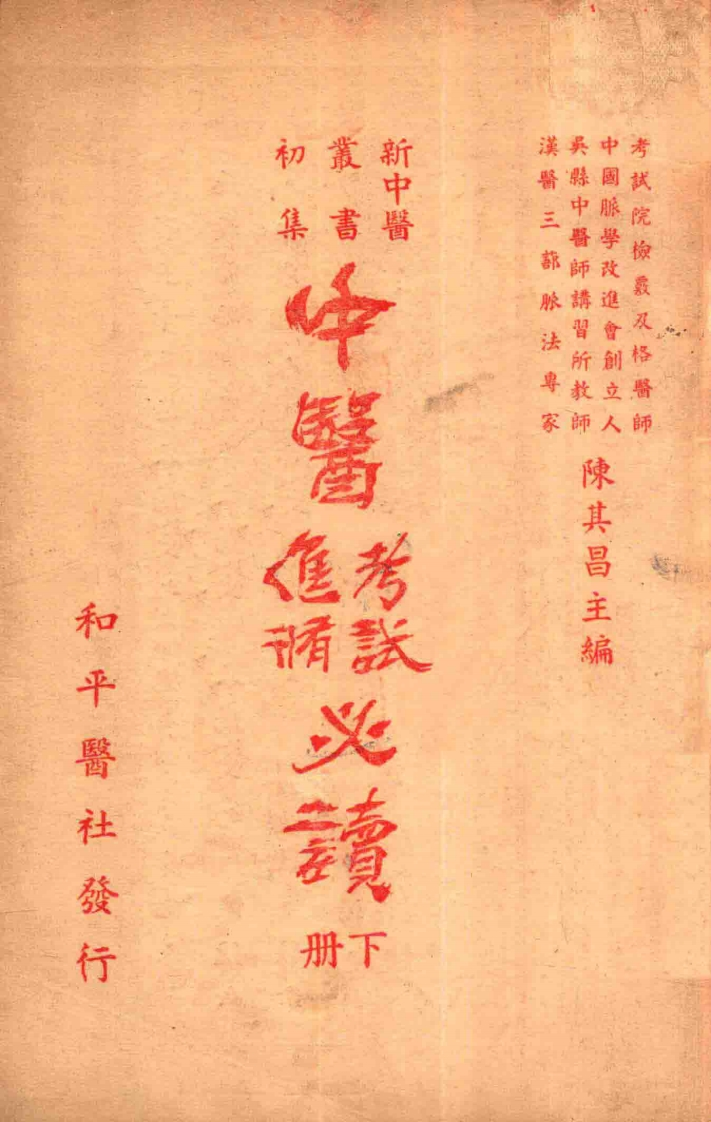 考試院檢覈及格醫師
中國脈學改進會創立人
吳縣中醫師講習所教師
漢醫三部脉法專家
陳其昌主編
新中醫
叢書
初集
中醫
考試
進脩
必讀
下
册
和平醫社發行